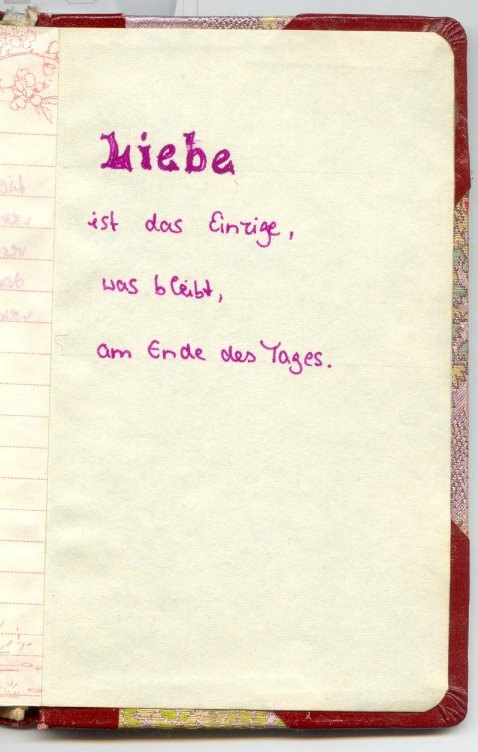 Liebe
ist das Einzige,
was bleibt,
am Ende des Tages.